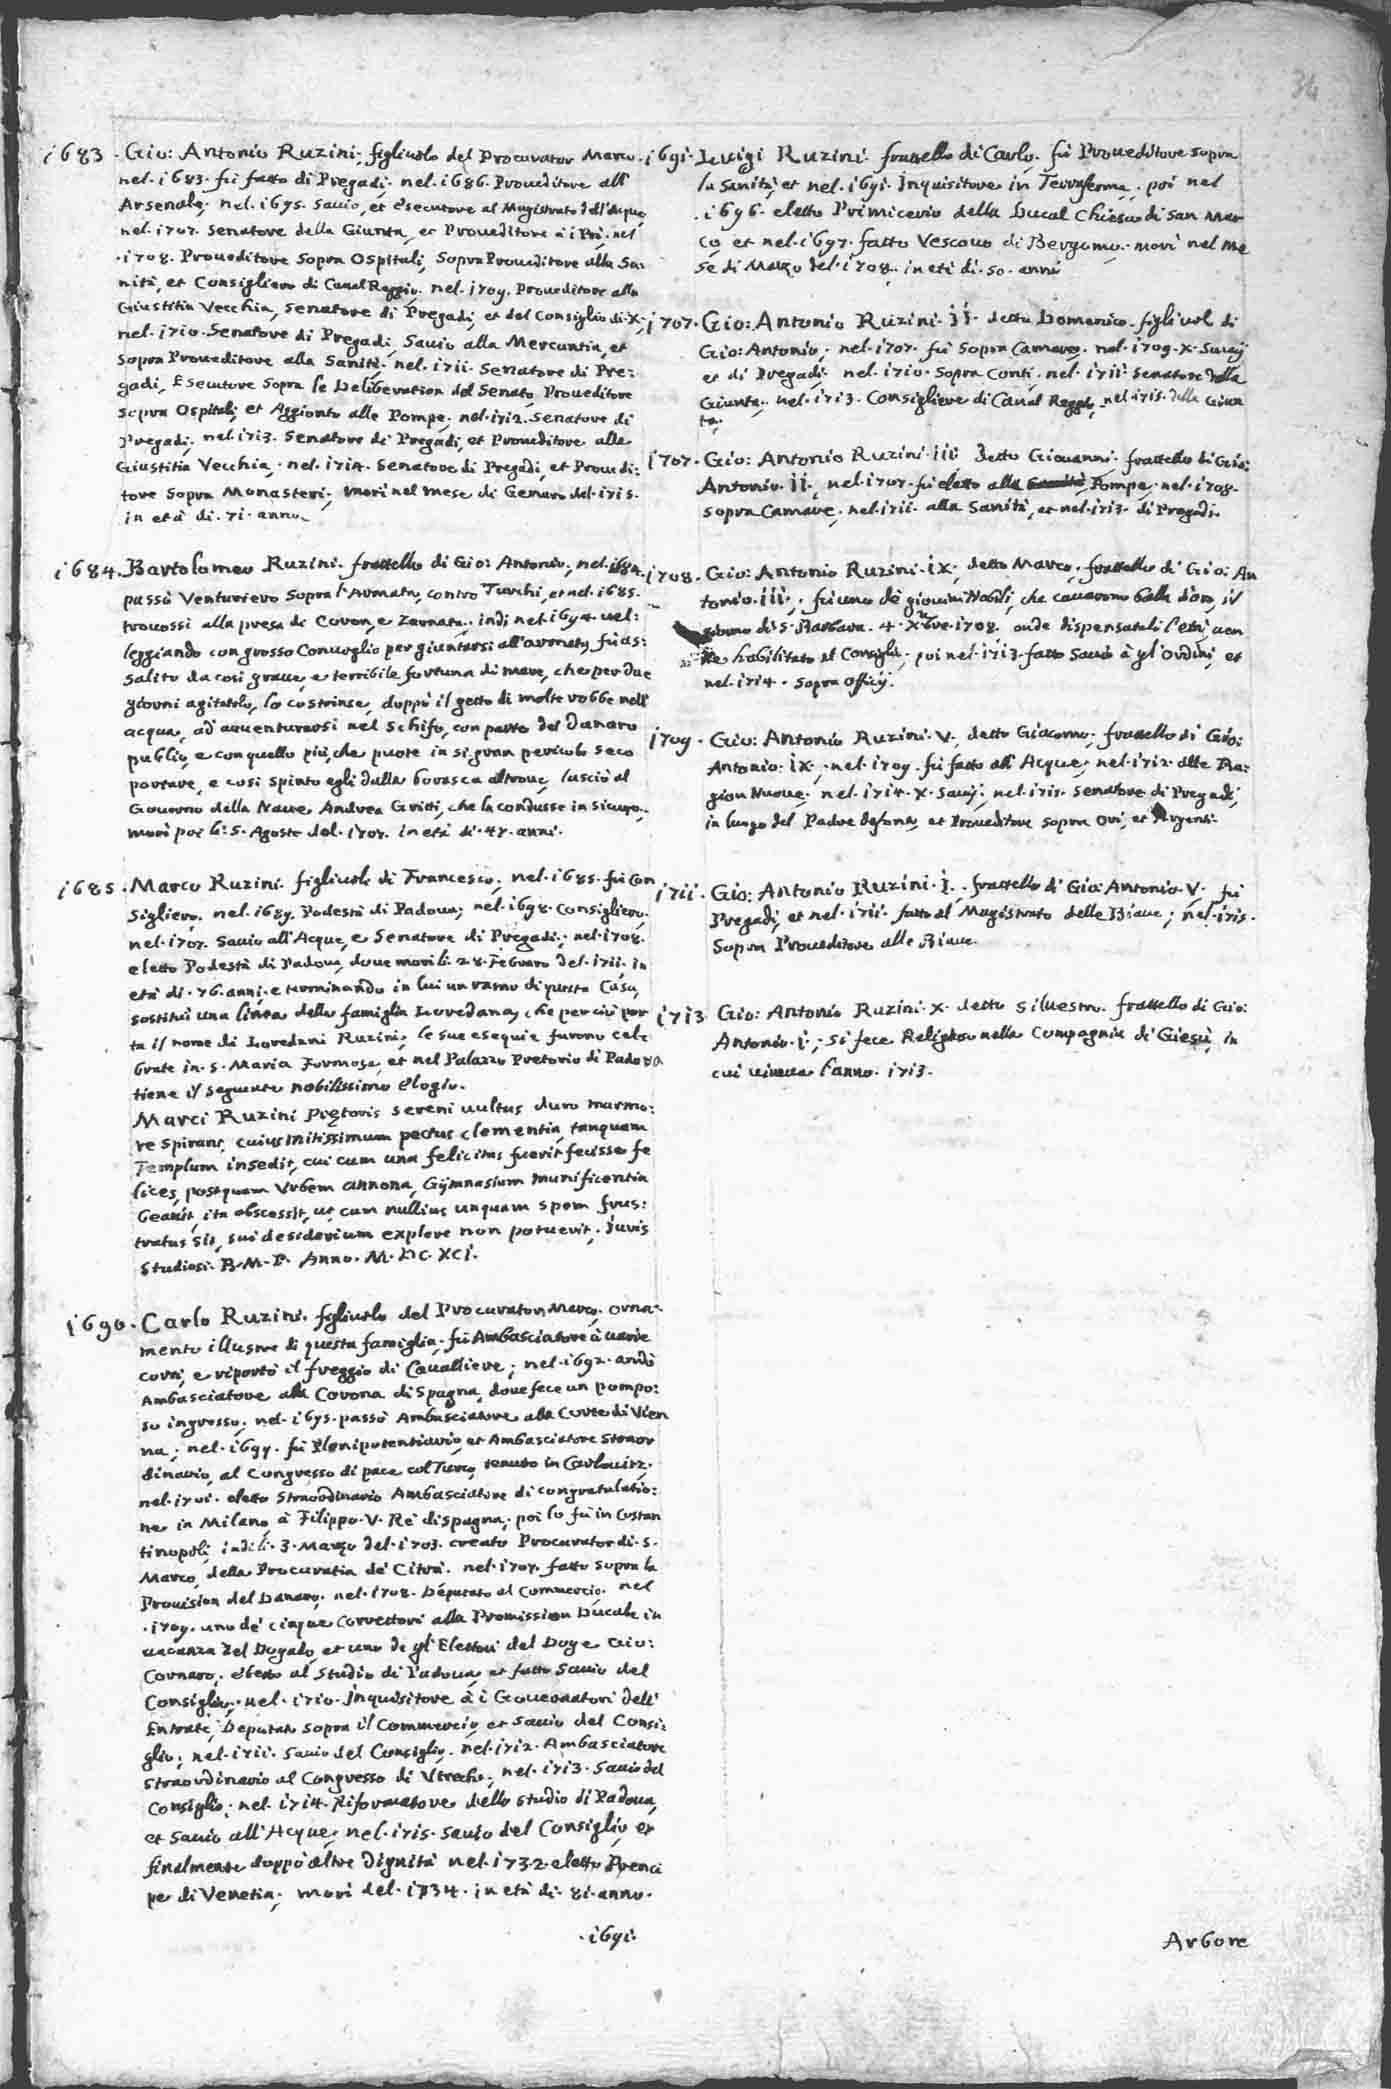 34
1683. Gio: Antonio Ruzini, figliuolo del Procurator Marco.
nel. 1683. fù fatto di Pregadi. nel. 1686. Proueditore all'
Arsenale, nel. 1695. Sauio, et Esecutore al Magistrato dell'Acque,
nel. 1707. Senatore della Giunta, et Proueditore à i Prò. nel
.1708. Proueditore Sopra Ospitali, Sopra Proueditore alla Sa:
nità, et Consigliero di Canal Reggio. nel. 1709. Proueditore alla
Giustitia Vecchia, Senatore di Pregadi, et del Consiglio di. X.
nel. 1710. Senatore di Pregadi, Sauio alla Mercantia, et
Sopra Proueditore alla Sanità. nel. 1711. Senatore di Pre:
gadi, Esecutore Sopra le Deliberation del Senato, Proueditore
sopra Ospitali, et Aggionto alle Pompe, nel. 1712. Senatore di
Pregadi, nel. 1713. Senatore di Pregadi, et Proueditore alla
Giustitia Vecchia, nel. 1714. Senatore di Pregadi, et Prouedi:
tore Sopra Monasteri, morì nel mese di Genaro del. 1715.
in età di. 71. anno.
1684. Bartolomeo Ruzini. frattello di Gio: Antonio, nel. 1684.
passò Venturiero Sopra l'Armata, contro Turchi, et nel. 1685.
trouossi alla presa di Coron, e Zarnata, indi nel. 1694. uel:
leggiando con grosso Conuoglio per giuntarsi all'armata, fù as:
salito da così graue, e terribile fortuna di mare, che per due
giorni agitatolo, lo costrinse, doppò il getto di molte robbe nell'
acqua, ad auuenturarsi nel Schifo, con parte del Danaro
publico, e con quello più, che puote in sì gran pericolo seco
portare, e così spinto egli dalla borasca altroue, lasciò al
Gouerno della Naue Andrea Gritti, che la condusse in sicuro.
morì poi li. 5. Agosto del. 1707. in età di. 47. anni.
1685. Marco Ruzini. figliuolo di Francesco, nel. 1685. fù Con
Sigliero, nel. 1689. Podestà di Padoua; nel. 1698. Consigliero.
nel. 1707. Sauio all'Acque, e Senatore di Pregadi, nel. 1708.
eletto Podestà di Padoua, doue morì li. 28. Febraro del. 1711. in
età di. 76. anni, e terminando in lui un ramo di questa Casa,
sostituì una linea della famiglia Loredana, che perciò por
ta il nome di Loredani Ruzini, le sue esequie furono cele
brate in. S. Maria Formosa, et nel Palazzo Pretorio di Padoua
tiene il seguente nobilissimo elogio.
Marci Ruzini Prętoris sereni uultus duro marmo:
re spirans, cuius mitissimum pectus clementia, tanquam
Templum insedit, cui cum una felicitas fuerit fecisse fe
lices, postquam Vrbem annona, Gÿmnasium munificentia
beauit, ita abscessit, ut cum nullius unquam spem frus:
tratus sit, sui desiderium explere non potuerit. Juris
Studiosi. B. M. P. Anno. M. DC. XCI.
1690. Carlo Ruzini. figliuolo del Procurator Marco. orna:
mento illustre di questa famiglia, fù Ambasciatore à uarie
corti, e riportò il freggio di Cauallière; nel. 1692. andò
Ambasciatore alla Corona di Spagna, doue fece un pompo:
so ingresso, nel. 1695. passò Ambasciatore alla Corte di Vien
na; nel. 1699. fù Plenipotentiario, et Ambasciatore Straor
dinario, al Congresso di pace col Turco, tenuto in Carlouitz.
nel. 1701. eletto Straordinario Ambasciatore di congratulatio:
ne in Milano, à Filippo. V. Rè di Spagna, poi lo fù in Costan
tinopoli, indi li. 3. Marzo del. 1703. creato Procurator di. S.
Marco, della Procuratia de' Citrà. nel. 1707. fatto Sopra la
Prouision del Danaro. nel. 1708. Deputato al Commercio. nel
.1709. uno de' cinque Correttori alla Promission Ducale in
uacanza del Dogado, et uno de gl'Elettori del Doge Gio:
Cornaro, eletto al Studio di Padoua, et fatto Sauio del
Consiglio. nel. 1710. Inquisitore à i Gouernatori dell'
Entrate, Deputato sopra il Commercio, et Sauio del Consi:
glio; nel. 1711. Sauio del Consiglio. nel. 1712. Ambasciatore
Straordinario al Congresso di Vtrecht, nel. 1713. Sauio del
Consiglio; nel. 1714. Riformatore dello studio di Padoua,
et Sauio all'Acque, nel. 1715. Sauio del Consiglio, et
finalmente doppò altre dignità nel. 1732. eletto Prenci
pe di Venetia; morì del. 1734. in età di. 81. anno.
.1691.
1691. Luigi Ruzini. frattello di Carlo, fù Proueditore sopra
la Sanità, et nel. 1691. Inquisitore in Terraferma, poi nel
.1696. eletto Primicerio della Ducal Chiesa di San Mar
co, et nel. 1697. fatto Vescouo di Bergamo, morì nel me
se di Marzo del. 1708. in età di. 50. anni
1707. Gio: Antonio Ruzini. II. detto Domenico. figliuol di
Gio: Antonio, nel. 1707. fù Sopra Camere, nel. 1709. X. Sauij
et di Pregadi. nel. 1710. Sopra Conti. nel. 1711. Senatore della
Giunta, nel. 1713. Consigliere di Canal Reggio, nel. 1715. della Giun
ta.
1707. Gio: Antonio Ruzini. III. detto Giouanni. frattello di Gio:
Antonio. II. nel. 1707. fù eletto alle Pompe, nel. 1708.
sopra Camere, nel. 1711. alla Sanità, et nel. 1713. di Pregadi.
1708. Gio: Antonio Ruzini. IX, detto Marco, frattello di Gio: An
tonio. III., fù uno de' giouini Nobili, che cauarono balla d'oro, il
giorno di S. Barbara. 4. Xbre. 1708. onde dispensatali l'età, uen
ne habilitato al Consiglio, poi nel. 1713. fatto Sauio à gl'Ordini, et
nel. 1714. Sopra Officij.
1709. Gio: Antonio Ruzini. V., detto Giacomo, frattello di Gio:
Antonio. IX., nel. 1709. fù fatto all'Acque, nel. 1712. alle Ra:
gion Nuoue. nel. 1714. X. Sauij, nel. 1715. Senatore di Pregadi,
in luogo del Padre defonto, et Proueditore sopra Ori, et Argenti.
1711. Gio: Antonio Ruzini. I., frattello di Gio: Antonio. V. fù
Pregadi, et nel. 1711. fatto al Magistrato delle Biaue; nel. 1715.
Sopra Proueditore alle Biaue.
1713 Gio: Antonio Ruzini. X. detto Siluestro. frattello di Gio:
Antonio. I., si fece Religioso nella Compagnia di Giesù, in
cui uiueua l'anno. 1713.
Arbore